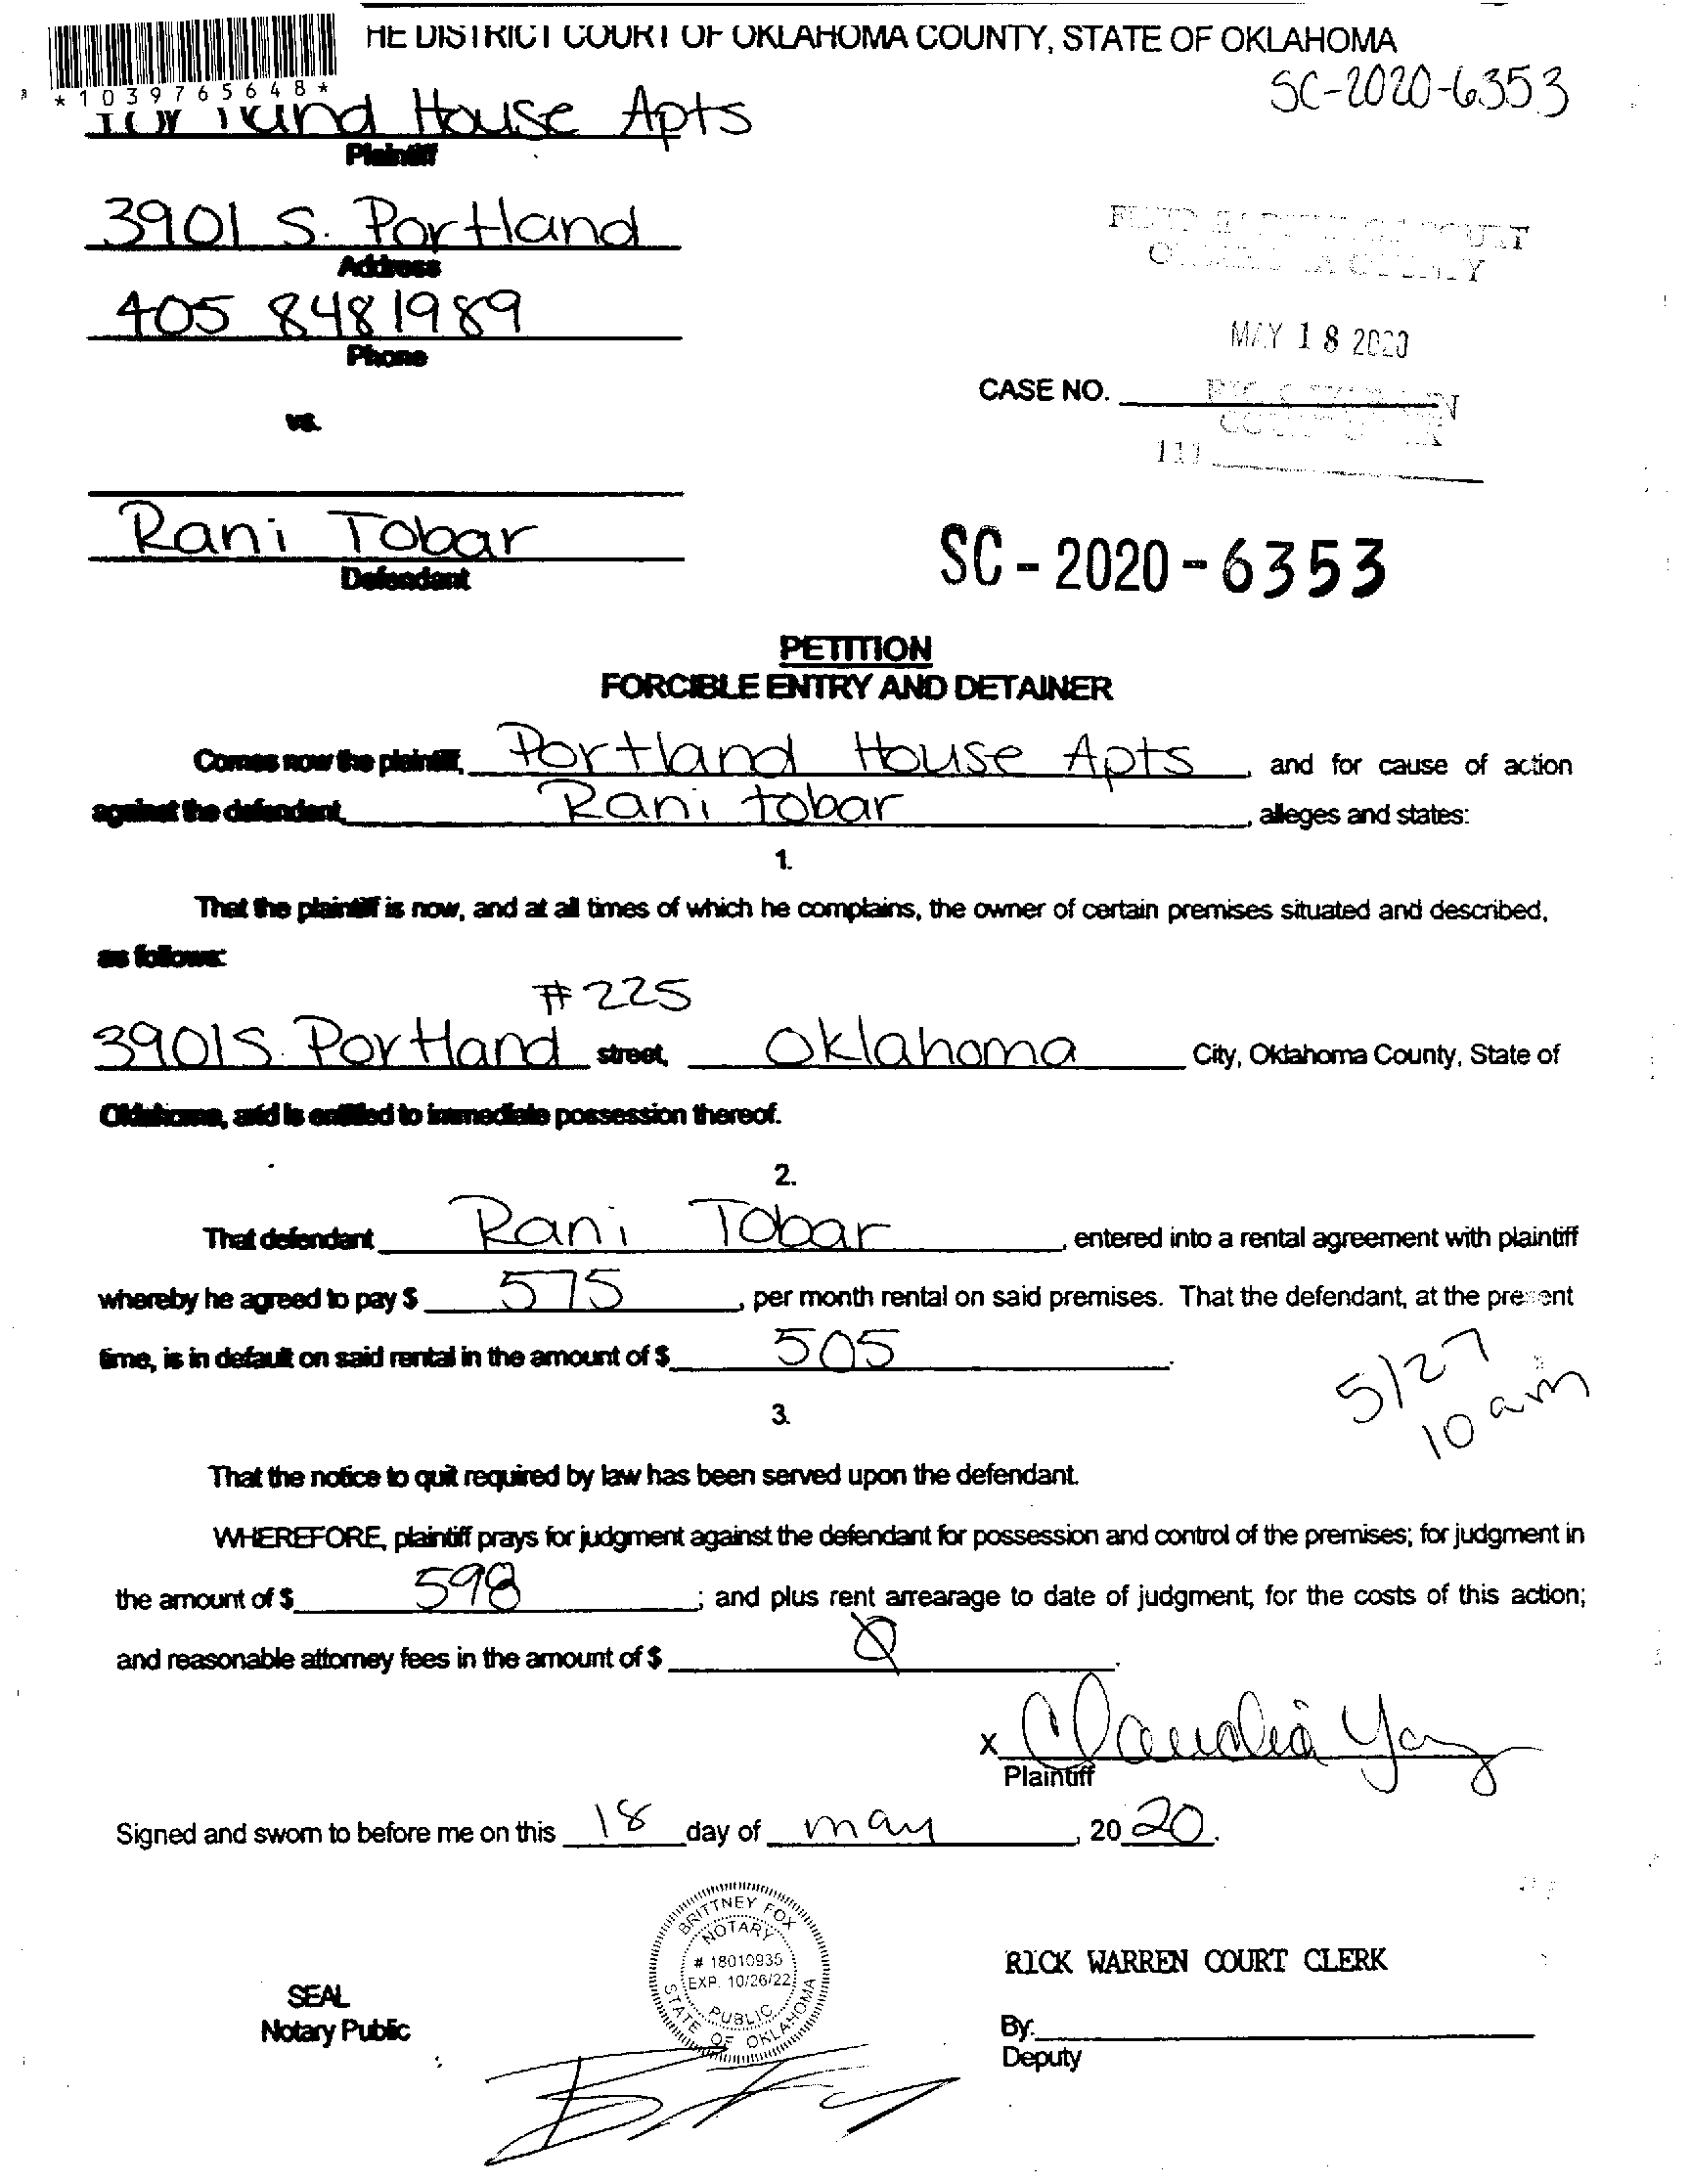 HE DISTRICT COURT OF OKLAHOMA COUNTY, STATE OF OKLAHOMA
*1039765648*
SC-2020-6353
House Apts
Plaintiff
3901 S. Portland
Address
405 8481989
Phone
MAY 18 2020
CASE NO.
vs.
111
Rani Tobar
Defendant
SC-2020-6353
PETITION
FORCIBLE ENTRY AND DETAINER
Comes now the plaintiff, Portland House Apts, and for cause of action
against the defendant, Rani tobar, alleges and states:
1.
That the plaintiff is now, and at all times of which he complains, the owner of certain premises situated and described,
as follows:
#225
3901 S. Portland street, Oklahoma City, Oklahoma County, State of
Oklahoma, and is entitled to immediate possession thereof.
2.
That defendant Rani Tobar, entered into a rental agreement with plaintiff
whereby he agreed to pay $ 575, per month rental on said premises. That the defendant, at the present
time, is in default on said rental in the amount of $ 505.
5/27
10 am
3.
That the notice to quit required by law has been served upon the defendant.
WHEREFORE, plaintiff prays for judgment against the defendant for possession and control of the premises; for judgment in
the amount of $ 598; and plus rent arrearage to date of judgment; for the costs of this action;
and reasonable attorney fees in the amount of $ Ø.
x Claudia
Plaintiff
Signed and sworn to before me on this 18 day of may, 2020.
BRITTNEY FOX
NOTARY
# 18010935
EXP. 10/26/22
PUBLIC
STATE OF OKLAHOMA
SEAL
Notary Public
RICK WARREN COURT CLERK
By:
Deputy